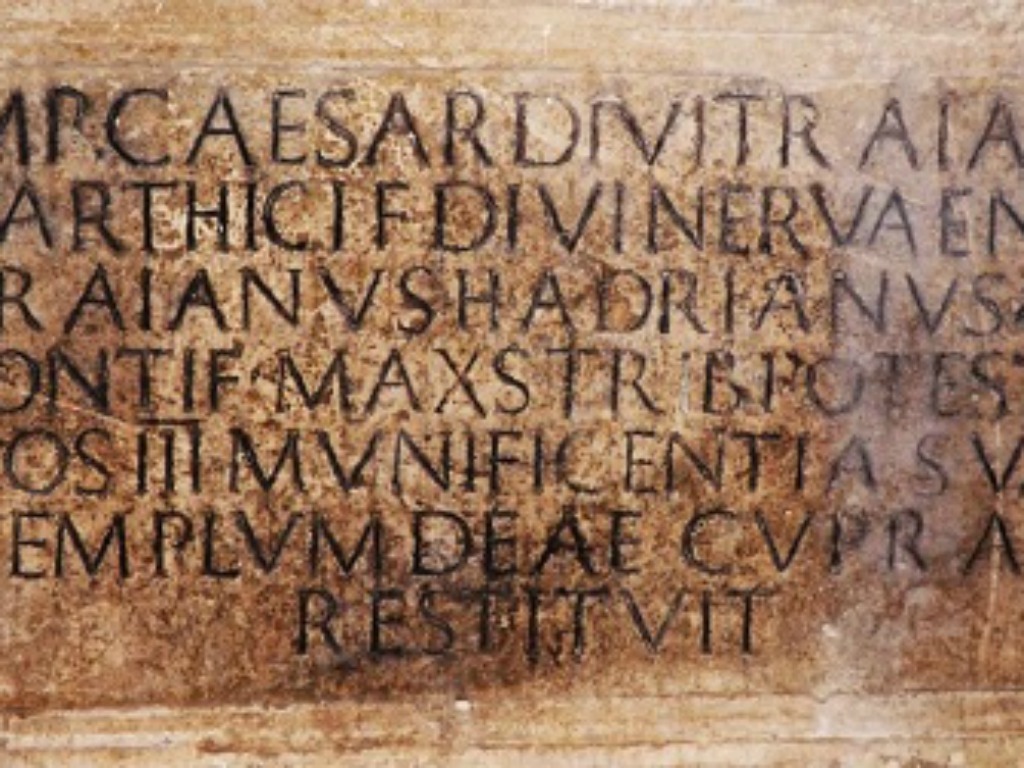 MP.CAESARDIVI.TRAIA
ARTHICIFDIVINERVAEN
RAIANVSHADRIANVS
ONTIF·MAXSTRIBPOTEST
OSIIIMVNIFICENTIASVA
EMPLVMDEAECVPRA
RESTITVIT